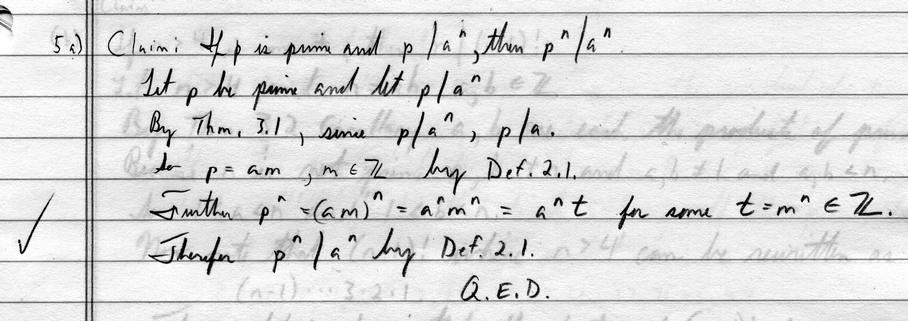 5a) Claim: If p is prime and p/aⁿ, then pⁿ/aⁿ.
Let p be prime and let p/aⁿ
By Thm. 3.1, since p/aⁿ, p/a.
So p = am, m ∈ ℤ by Def. 2.1.
Further pⁿ = (am)ⁿ = aⁿmⁿ = aⁿt for some t = mⁿ ∈ ℤ.
Therefor pⁿ/aⁿ by Def. 2.1.
Q.E.D.